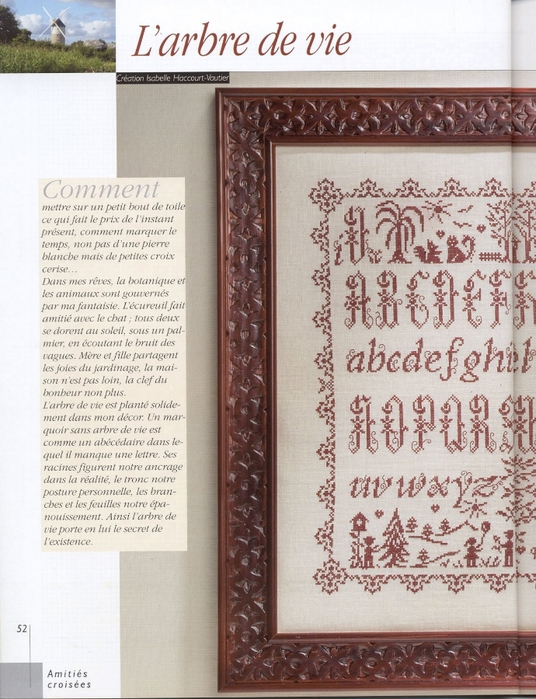 L'arbre de vie
Création Isabelle Haccourt-Vautier
Comment
mettre sur un petit bout de toile
ce qui fait le prix de l'instant
présent, comment marquer le
temps, non pas d'une pierre
blanche mais de petites croix
cerise…
Dans mes rêves, la botanique et
les animaux sont gouvernés
par ma fantaisie. L'écureuil fait
amitié avec le chat ; tous deux
se dorent au soleil, sous un pal-
mier, en écoutant le bruit des
vagues. Mère et fille partagent
les joies du jardinage, la mai-
son n'est pas loin, la clef du
bonheur non plus.
L'arbre de vie est planté solide-
ment dans mon décor. Un mar-
quoir sans arbre de vie est
comme un abécédaire dans le-
quel il manque une lettre. Ses
racines figurent notre ancrage
dans la réalité, le tronc notre
posture personnelle, les bran-
ches et les feuilles notre épa-
nouissement. Ainsi l'arbre de
vie porte en lui le secret de
l'existence.
A
ABCDEFH
abcdefghil
NOPQR
uvwxyz
52
Amitiés
croisées